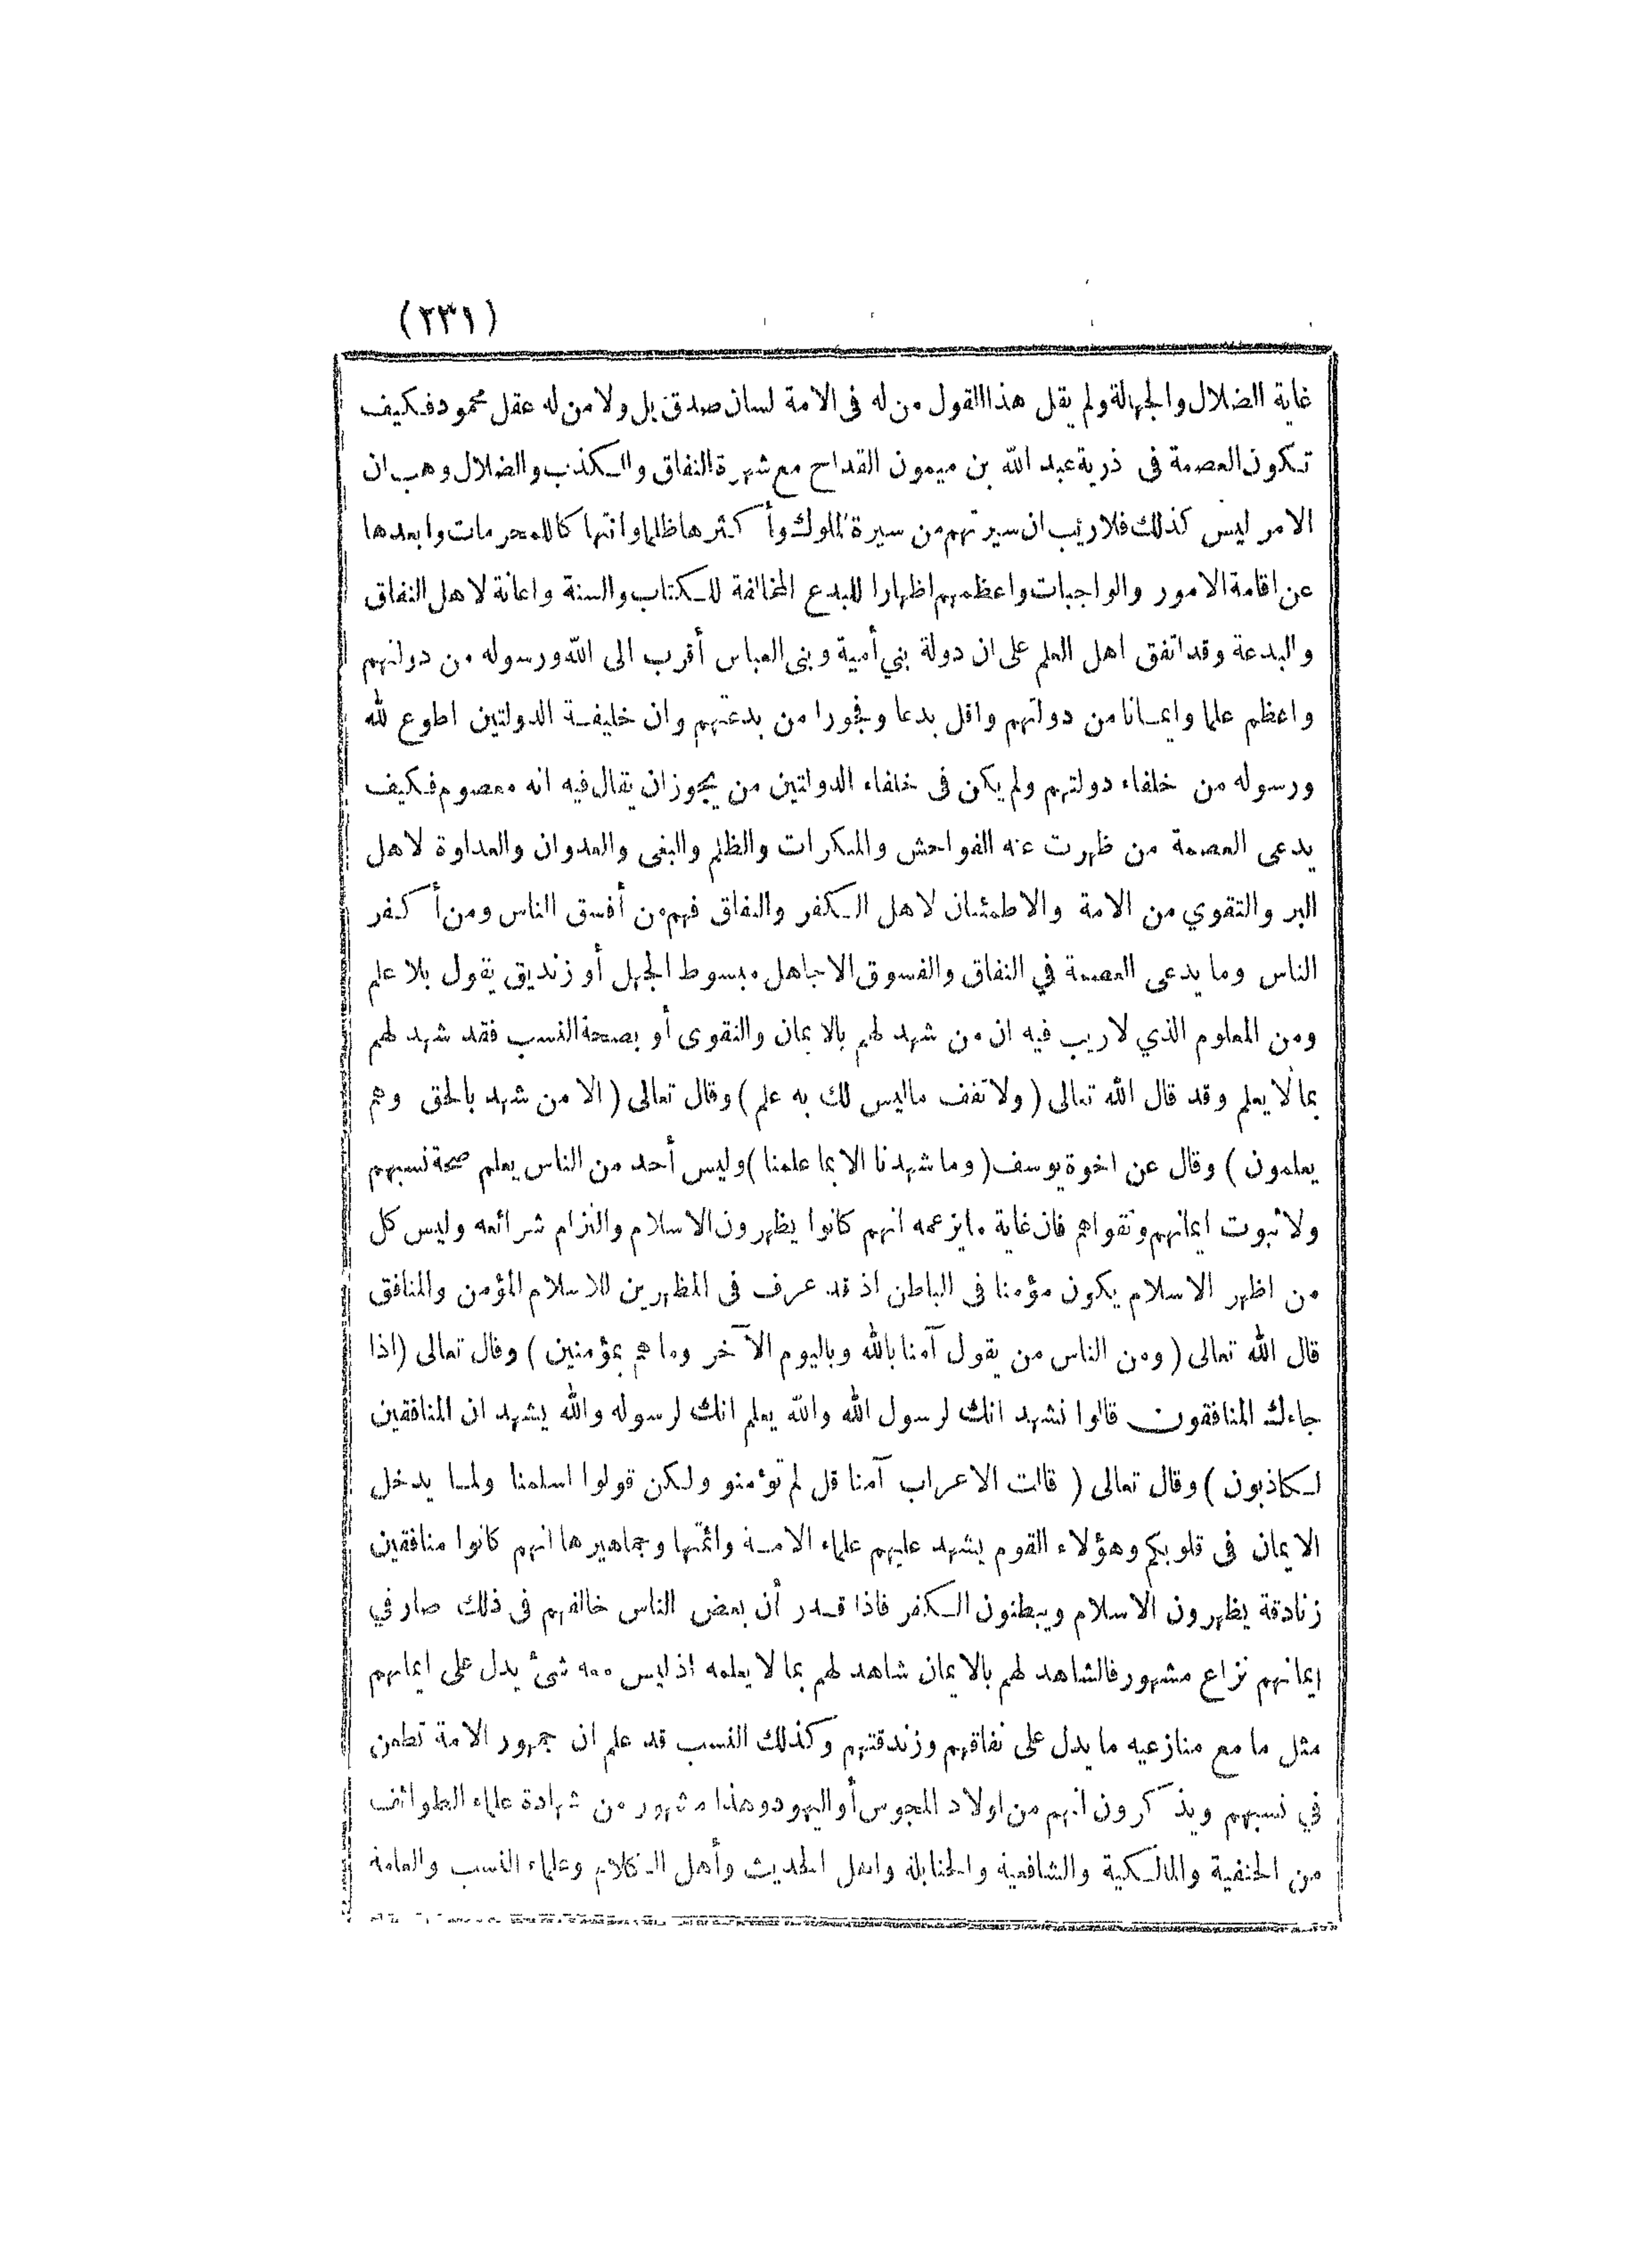 (٢٣١)
غاية الضلال والجهالة ولم يقل هذا القول من له فى الامة لسان صدق بل ولا من له عقل محمود فكيف
تكون العصمة فى ذرية عبد الله بن ميمون القداح مع شهرة النفاق والكذب والضلال وهب ان
الامر ليس كذلك فلا ريب ان سيرتهم من سيرة الملوك وأكثرها ظلما وانتهاكا للمحرمات وابعدها
عن اقامة الامور والواجبات واعظمهم اظهارا للبدع المخالفة للكتاب والسنة واعانة لاهل النفاق
والبدعة وقد اتفق اهل العلم على ان دولة بني أمية وبنى العباس أقرب الى الله ورسوله من دولتهم
واعظم علما وايمانا من دولتهم واقل بدعا وفجورا من بدعتهم وان خليفة الدولتين اطوع لله
ورسوله من خلفاء دولتهم ولم يكن فى خلفاء الدولتين من يجوز ان يقال فيه انه معصوم فكيف
يدعى العصمة من ظهرت عنه الفواحش والمنكرات والظلم والبغى والعدوان والعداوة لاهل
البر والتقوي من الامة والاطمئنان لاهل الكفر والنفاق فهم من أفسق الناس ومن أكفر
الناس وما يدعى العصمة في النفاق والفسوق الا جاهل مبسوط الجهل أو زنديق يقول بلا علم
ومن المعلوم الذي لا ريب فيه ان من شهد لهم بالايمان والتقوى أو بصحة النسب فقد شهد لهم
بما لا يعلم وقد قال الله تعالى ( ولا تقف ماليس لك به علم ) وقال تعالى ( الا من شهد بالحق وهم
يعلمون ) وقال عن اخوة يوسف ( وما شهدنا الا بما علمنا ) وليس أحد من الناس يعلم صحة نسبهم
ولا ثبوت ايمانهم وتقواهم فان غاية مايزعمه انهم كانوا يظهرون الاسلام والتزام شرائعه وليس كل
من اظهر الاسلام يكون مؤمنا فى الباطن اذ قد عرف فى المظهرين للاسلام المؤمن والمنافق
قال الله تعالى ( ومن الناس من يقول آمنا بالله وباليوم الآخر وما هم بمؤمنين ) وقال تعالى (اذا
جاءك المنافقون قالوا نشهد انك لرسول الله والله يعلم انك لرسوله والله يشهد ان المنافقين
لكاذبون ) وقال تعالى ( قالت الاعراب آمنا قل لم تؤمنو ولكن قولوا اسلمنا ولما يدخل
الايمان فى قلوبكم وهؤلاء القوم يشهد عليهم علماء الامة وائمتها وجماهيرها انهم كانوا منافقين
زنادقة يظهرون الاسلام ويبطنون الكفر فاذا قدر أن بعض الناس خالفهم فى ذلك صار في
ايمانهم نزاع مشهور فالشاهد لهم بالايمان شاهد لهم بما لا يعلمه اذ ليس معه شئ يدل على ايمانهم
مثل ما مع منازعيه ما يدل على نفاقهم وزندقتهم وكذلك النسب قد علم ان جمهور الامة تطعن
في نسبهم ويذكرون انهم من اولاد المجوس أو اليهود وهذا مشهور من شهادة علماء الطوائف
من الحنفية والمالكية والشافعية والحنابلة واهل الحديث وأهل الكلام وعلماء النسب والعامة